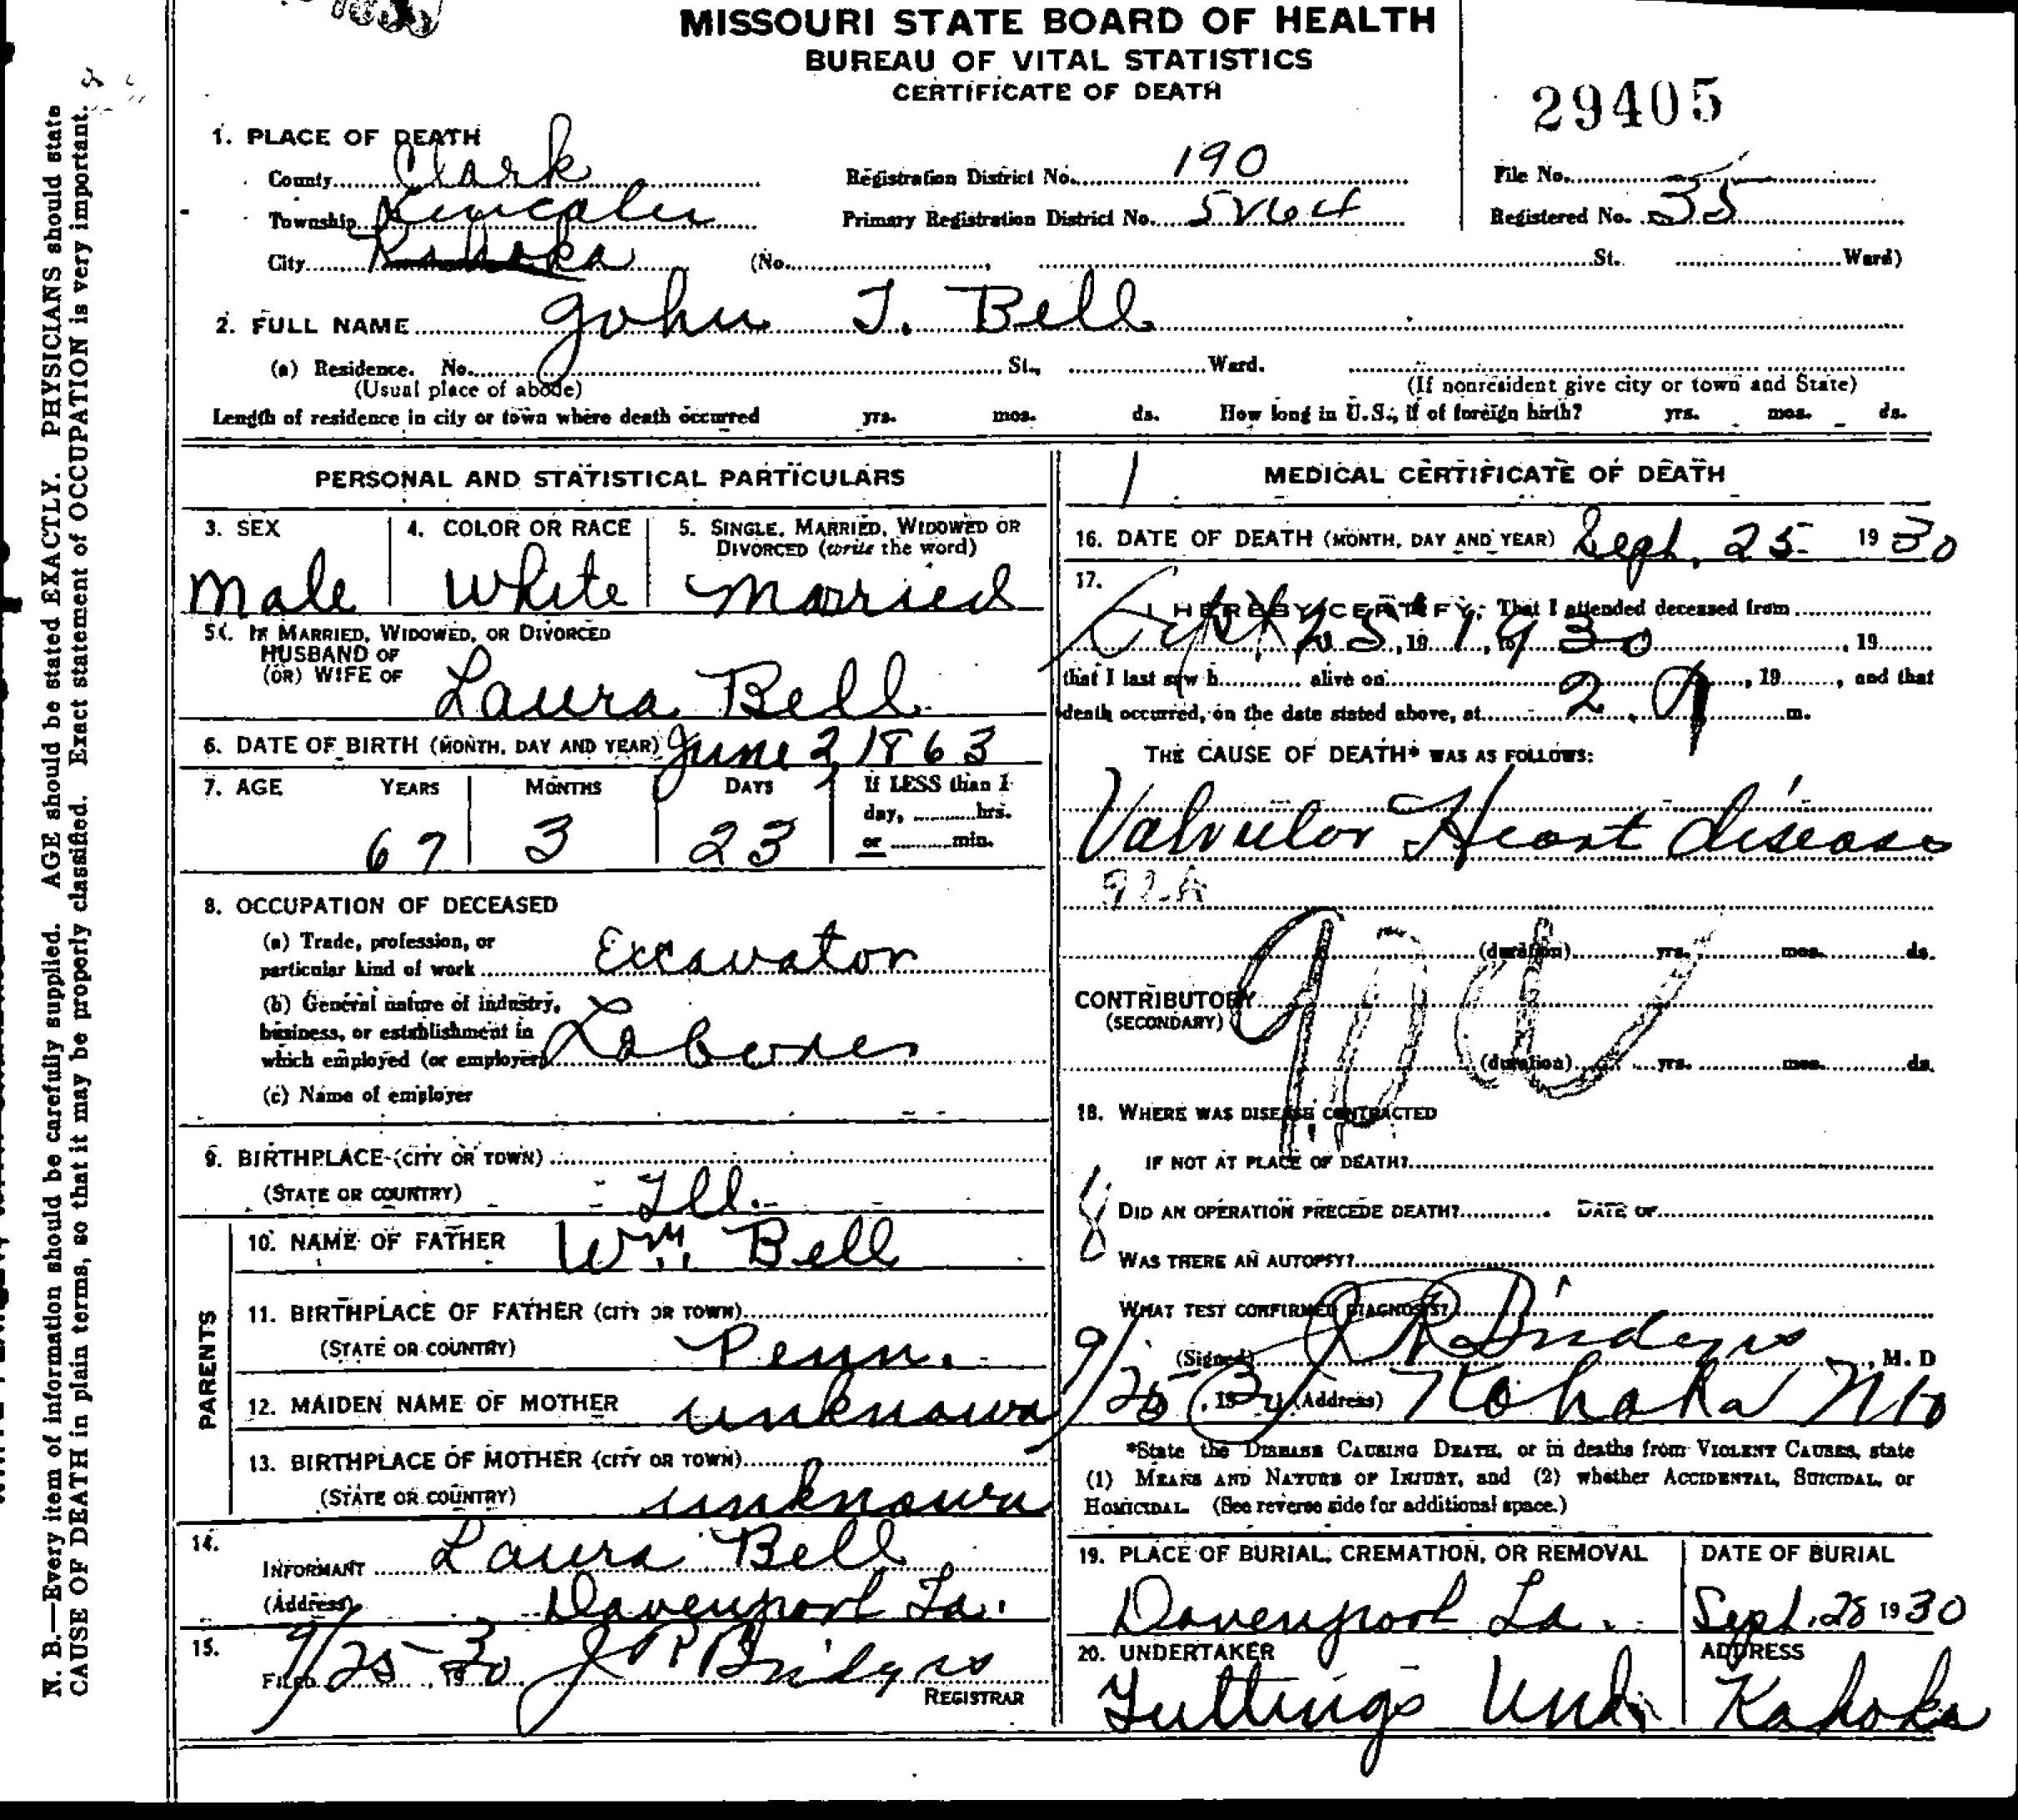 MISSOURI STATE BOARD OF HEALTH
BUREAU OF VITAL STATISTICS
CERTIFICATE OF DEATH
29405
1. PLACE OF DEATH
County Clark Registration District No. 190 File No.
Township Primary Registration District No. 5264 Registered No. 35
City Kahoka (No. St. Ward)
2. FULL NAME John T. Bell
(a) Residence. No. St., Ward.
(Usual place of abode) (If nonresident give city or town and State)
Length of residence in city or town where death occurred yrs. mos. ds. How long in U.S., if of foreign birth? yrs. mos. ds.
PERSONAL AND STATISTICAL PARTICULARS
3. SEX 4. COLOR OR RACE 5. SINGLE, MARRIED, WIDOWED OR
DIVORCED (write the word)
Male White Married
5A. IF MARRIED, WIDOWED, OR DIVORCED
HUSBAND OF
(OR) WIFE OF Laura Bell
6. DATE OF BIRTH (MONTH, DAY AND YEAR) June 2, 1863
7. AGE YEARS MONTHS DAYS If LESS than 1
day, hrs.
or min.
67 3 23
8. OCCUPATION OF DECEASED
(a) Trade, profession, or
particular kind of work Excavator
(b) General nature of industry,
business, or establishment in
which employed (or employer) Laborer
(c) Name of employer
9. BIRTHPLACE (CITY OR TOWN)
(STATE OR COUNTRY) Ill.
PARENTS
10. NAME OF FATHER Wm. Bell
11. BIRTHPLACE OF FATHER (CITY OR TOWN)
(STATE OR COUNTRY) Penn.
12. MAIDEN NAME OF MOTHER unknown
13. BIRTHPLACE OF MOTHER (CITY OR TOWN)
(STATE OR COUNTRY) unknown
14.
INFORMANT Laura Bell
(Address) Davenport Ia.
15.
FILED 9/25, 1930 J R Bridges
REGISTRAR
MEDICAL CERTIFICATE OF DEATH
16. DATE OF DEATH (MONTH, DAY AND YEAR) Sept. 25 1930
17.
I HEREBY CERTIFY, That I attended deceased from
Sept 25, 19 1930, 19
that I last saw h alive on , 19 , and that
death occurred, on the date stated above, at 2 P m.
THE CAUSE OF DEATH* WAS AS FOLLOWS:
Valvular Heart disease
92A
(duration) yrs. mos. ds.
CONTRIBUTORY
(SECONDARY)
(duration) yrs. mos. ds.
18. WHERE WAS DISEASE CONTRACTED
IF NOT AT PLACE OF DEATH?
DID AN OPERATION PRECEDE DEATH? DATE OF
WAS THERE AN AUTOPSY?
WHAT TEST CONFIRMED DIAGNOSIS?
(Signed) J R Bridges, M. D
9/25, 19 (Address) Kahoka Mo
*State the DISEASE CAUSING DEATH, or in deaths from VIOLENT CAUSES, state
(1) MEANS AND NATURE OF INJURY, and (2) whether ACCIDENTAL, SUICIDAL, or
HOMICIDAL. (See reverse side for additional space.)
19. PLACE OF BURIAL, CREMATION, OR REMOVAL DATE OF BURIAL
Davenport Ia. Sept. 28 1930
20. UNDERTAKER ADDRESS
Und. Kahoka
N. B.—Every item of information should be carefully supplied. AGE should be stated EXACTLY. PHYSICIANS should state
CAUSE OF DEATH in plain terms, so that it may be properly classified. Exact statement of OCCUPATION is very important.